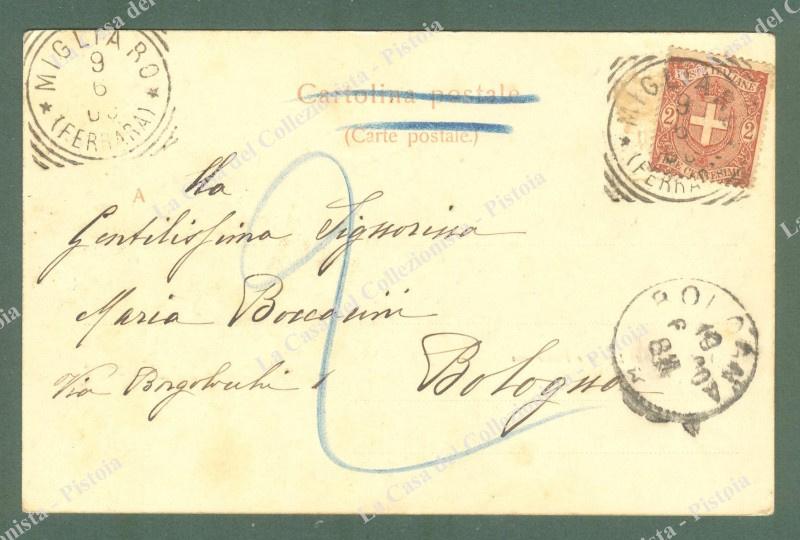 MIGLIARO
9
6
(FERRARA)
Cartolina postale
(Carte postale.)
MIGLIARO
9
6
(FERRARA)
POSTE ITALIANE
2 2
A
Alla
Gentilissima Signorina
Maria Boccarini
Via Borgolocchi 1
Bologna
2
BOLOGNA
10
6
8M
La Casa del Collezionista - Pistoia